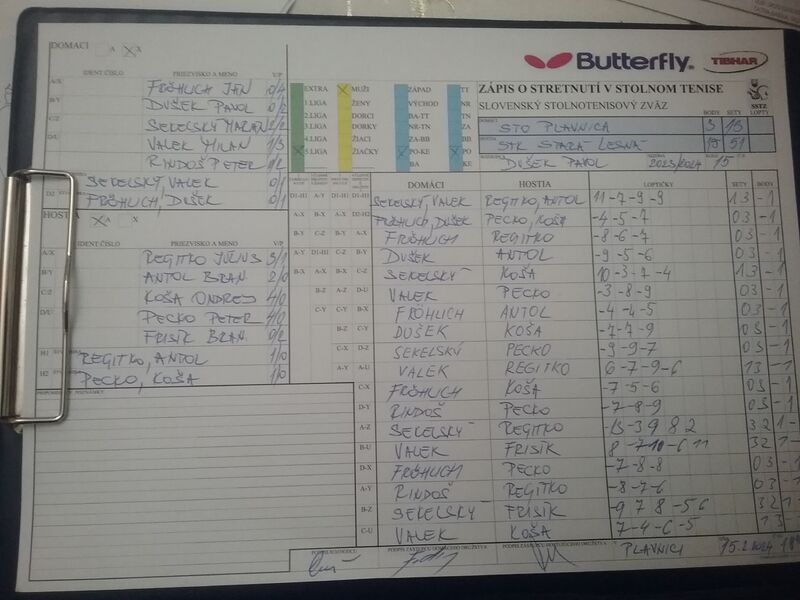 DOMACI A X
IDENT ČÍSLO PRIEZVISKO A MENO V/P
A/X FRÖHLICH JÁN 0/4
B/Y DUŠEK PAVOL 0/2
C/Z SEKELSKÝ MARIAN 2/2
D/U VALEK MILAN 1/3
RINDOŠ PETER 0/2
SEKELSKÝ, VALEK 0/1
D2 FRÖHLICH, DUŠEK 0/1
HOSTIA A X
IDENT ČÍSLO PRIEZVISKO A MENO V/P
A/X REGITKO JÚLIUS 3/1
B/Y ANTOL BRAN. 2/0
C/Z KOŠA ONDREJ 4/0
D/U PECKO PETER 4/0
FRISÍK BRAN. 0/2
H1 REGITKO, ANTOL 1/0
H2 PECKO, KOŠA 1/0
POZNÁMKY
Butterfly
TIBHAR
EXTRA MUŽI ZÁPAD TT
1.LIGA ŽENY VÝCHOD NR
2.LIGA DORCI BA-TT TN
3.LIGA DORKY NR-TN ZA
4.LIGA ŽIACI ZA-BB BB
5.LIGA ŽIAČKY PO-KE PO
BA KE
ZÁPIS O STRETNUTÍ V STOLNOM TENISE
SLOVENSKÝ STOLNOTENISOVÝ ZVÄZ
SSTZ
BODY SETY LOPTY
DOMÁCI STO PLAVNICA 3 15
HOSTIA STK STARÁ LESNÁ 15 51
DUŠEK PAVOL SEZÓNA 2023/2024 15
DOMÁCI HOSTIA LOPTIČKY SETY BODY
SEKELSKÝ, VALEK REGITKO, ANTOL 11 -7 -9 -9 1 3 - 1
FRÖHLICH, DUŠEK PECKO, KOŠA -4 -5 -7 0 3 - 1
FRÖHLICH REGITKO -8 -6 -7 0 3 - 1
DUŠEK ANTOL -9 -5 -6 0 3 - 1
SEKELSKÝ KOŠA 10 -3 -7 -4 1 3 - 1
VALEK PECKO -3 -8 -9 0 3 - 1
FRÖHLICH ANTOL -4 -4 -5 0 3 - 1
DUŠEK KOŠA -7 -7 -9 0 3 - 1
SEKELSKÝ PECKO -9 -9 -7 0 3 - 1
VALEK REGITKO 6 -7 -9 -6 1 3 - 1
C-X FRÖHLICH KOŠA -7 -5 -6 0 3 - 1
D-Y RINDOŠ PECKO -7 -8 -9 0 3 - 1
A-Z SEKELSKÝ REGITKO -13 -3 9 8 2 3 2 1 -
B-U VALEK FRISÍK 8 -7 10 -6 11 3 2 1 -
D-X FRÖHLICH PECKO -7 -8 -8 0 3 - 1
A-Y RINDOŠ REGITKO -8 -7 -6 0 3 - 1
B-Z SEKELSKÝ FRISÍK -9 7 8 -5 6 3 2 1
C-U VALEK KOŠA 7 -4 -6 -5 1 3
PLAVNICI 15.2.2024